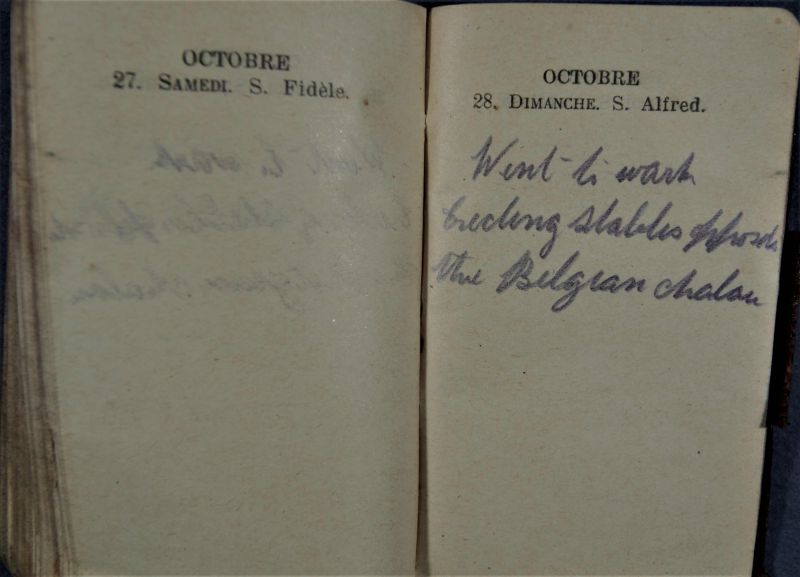 OCTOBRE
27. SAMEDI. S. Fidèle.
OCTOBRE
28. DIMANCHE. S. Alfred.
Went to work
Erecting stables opposite
the Belgian chalau